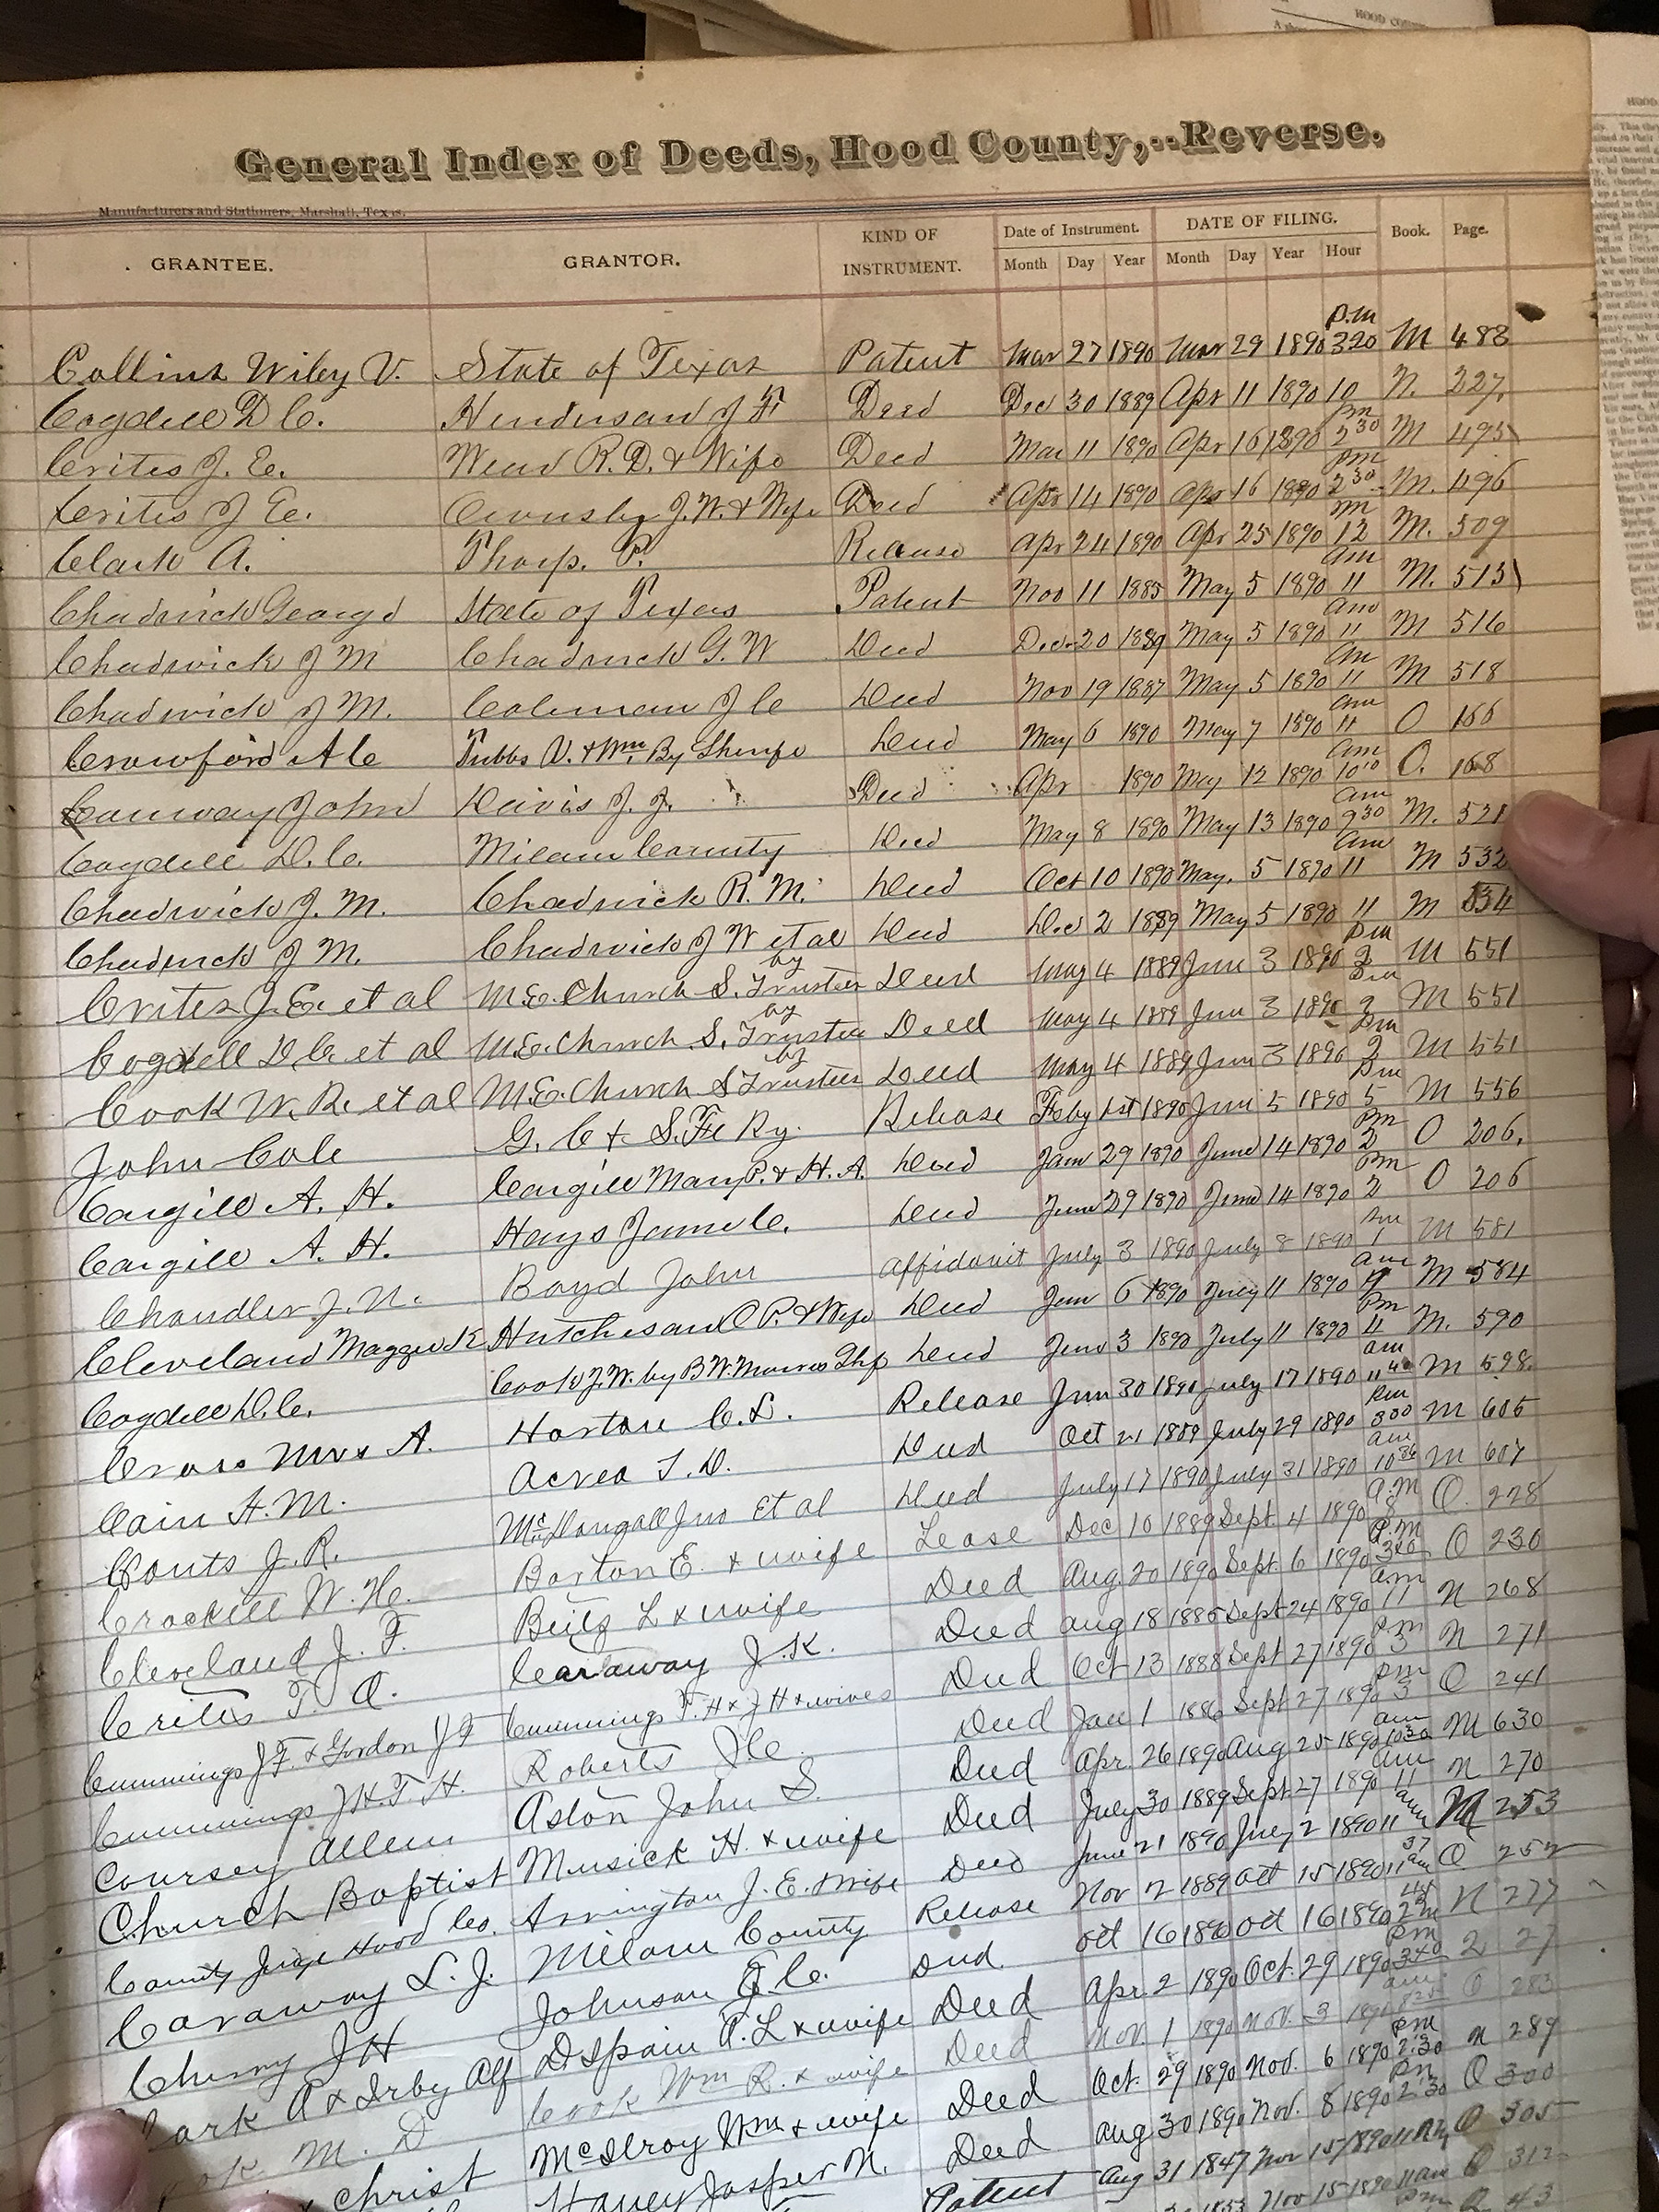 General Index of Deeds, Hood County,--Reverse.
Manufacturers and Stationers, Marshall, Texas.
GRANTEE. GRANTOR. KIND OF INSTRUMENT. Date of Instrument. DATE OF FILING. Book. Page.
Month Day Year Month Day Year Hour
Collins Wiley V. State of Texas Patent Mar 27 1890 Mar 29 1890 p.m 320 M 483
Cogdell D C. Henderson J F Deed Dec 30 1889 Apr 11 1890 10 N. 227.
Crites J. E. R. D. & Wife Deed Mar 11 1890 Apr 16 1890 pm 2 30 M 495
Crites J E. J. W. & Wife Deed Apr 14 1890 Apr 16 1890 pm 2 30 M. 496
Clark A. Thorp. P. Release Apr 24 1890 Apr 25 1890 m 12 M. 509
Chadwick State of Texas Patent Nov 11 1885 May 5 1890 am 11 M. 513
Chadwick J M Chadwick G. W Deed Dec 20 1889 May 5 1890 am 11 M 516
Chadwick J M. Coleman J C Deed Nov 19 1887 May 5 1890 am 11 M 518
Crawford A C Tubbs V. & Wm. By Deed May 6 1890 May 7 1890 am 11 O 166
John Davis J. J. Deed Apr 1890 May 12 1890 am 10 10 O. 168
Cogdell D. C. Milam County Deed May 8 1890 May 13 1890 am 9 30 M. 521
Chadwick J. M. Chadwick R. M. Deed Oct 10 1890 May. 5 1890 am 11 M 532
Chadwick J M. Chadwick J W et al Deed Dec 2 1889 May 5 1890 11 M 534
Crites J. E. et al M. E. Church S. by Trustees Deed May 4 1889 Jun 3 1890 pm 2 M 551
Cogdell D C. et al M. E. Church S. by Trustee Deed May 4 1889 Jun 3 1890 pm 2 M 551
Cook W. R. et al M. E. Church S by Trustees Deed May 4 1889 Jun 3 1890 pm 2 M 551
John Cole G. C & S. Fe Ry. Release Feby 1st 1890 Jun 5 1890 pm 5 M 556
Cargill A. H. Cargill Mary P. & H. A. Deed Jan 29 1890 June 14 1890 pm 2 O 206.
Cargill A. H. Hays Deed 29 1890 June 14 1890 pm 2 O 206
Chandler J. N. Boyd John Affidavit July 3 1890 July 8 1890 pm 1 M 581
Cleveland Maggie K Hutcheson O P. & Wife Deed Jun 6 1890 July 11 1890 am M 584
Cogdell D. C. Cook J. W. by B W. Deed Jun 3 1890 July 11 1890 pm 4 M. 590
Mrs A. Horton C. L. Release Jun 30 1890 July 17 1890 am 11 40 M 598.
Cain A. M. Acrea T. D. Deed Oct 21 1889 July 29 1890 pm 3 00 M 605
Couts J. R. McDougall Jno Et al Deed July 17 1890 July 31 1890 am 10 M 607
Crockett W. H. Barton E. & wife Lease Dec 10 1889 Sept. 4 1890 a.m 8 O. 228
Cleveland J. F. L & wife Deed Aug. 20 1890 Sept. 6 1890 P.M 340 O 230
Crites T. A. Caraway J. K. Deed Aug 18 1885 Sept 24 1890 a.m 11 N 268
Cummings J F. & Gordon J F Cummings F. H & J H & wives Deed Oct 13 1888 Sept 27 1890 p.m 3 N 271
Cummings J H. F. H. Roberts J C. Deed Jan 1 1886 Sept 27 1890 pm 3 O 241
Coursey Allen Aston John S. Deed Apr. 26 1890 Aug 25 1890 am 1030 M 630
Church Baptist Musick H. & wife Deed July 30 1889 Sept 27 1890 am 11 N 270
County Judge Hood Co. Arrington J. E. & wife Deed June 21 1890 July 2 1890 11 am M 253
Caraway L. J. Milam County Release Nov 2 1889 Oct 15 1890 11 37 am O 252
Cherry J H Johnson J C. Deed. Oct 16 1890 Oct 16 1890 N 277
Clark A & Irby Alf DSpain A. L & wife Deed Apr. 2 1890 Oct. 29 1890 pm 340 2 27
M. D Cook Wm R. & wife Deed Nov. 1 1890 Nov. 3 1890 am 825 O 283
Christ McIlroy Wm & wife Deed Oct. 29 1890 Nov. 6 1890 pm 2:30 N 289
Haney Jasper N. Deed Aug 30 1890 Nov. 8 1890 pm 2:30 O 300
Patent Aug 31 1847 Nov 15 1890 O 305
1853 Nov 15 1890 11 am O 312